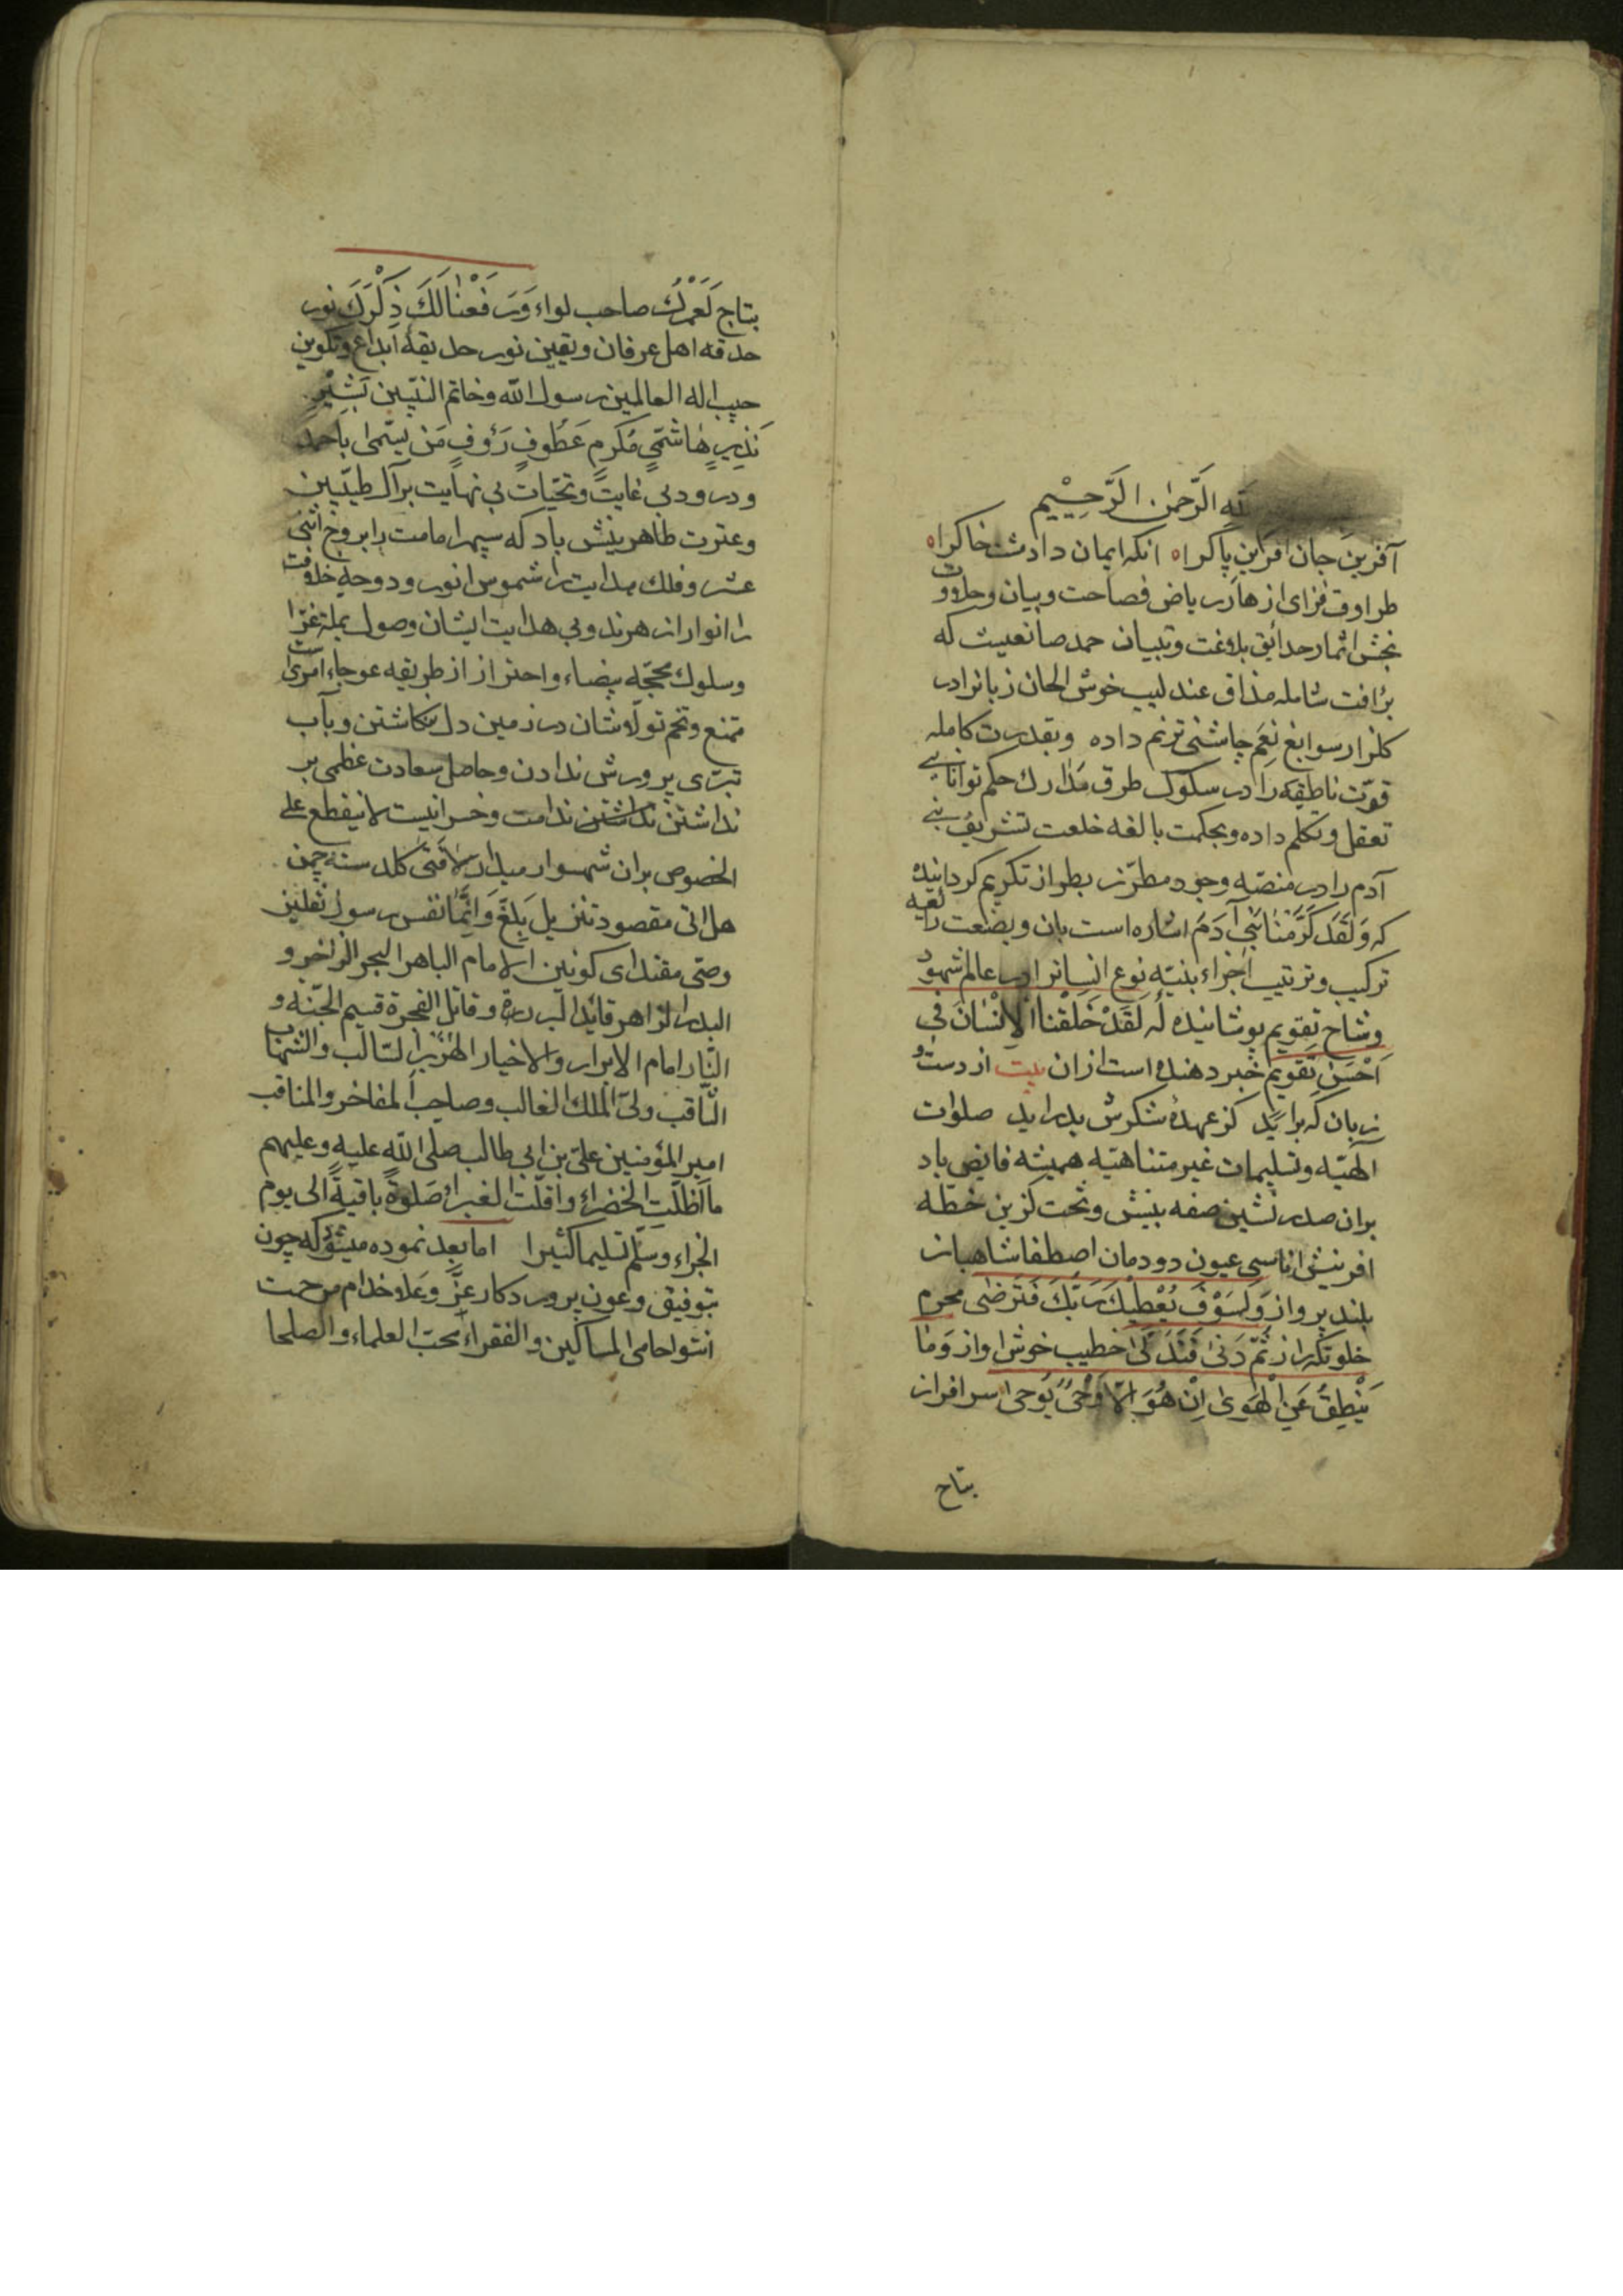 لله الرَّحمٰن الرَّحِیْیم
آفرین جان آفرین پاکراه آنکه ایمان داد مشت خاکراه
طراوت فزای ازهار ریاض فصاحت و بیان و حلاوت
بخش اثمار حدایق بلاغت و تبیان حمد صانعیست که
برٲفت شامله مذاق عندلیب خوش الحان زبانرا در
کلزار سوابغ نِعَم چاشنی ترنم داده و بقدرت کامله
قوّت ناطقه را در سلوک طرق مدارك حکم توانایی
تعقل و تکلم داده و بحکمت بالغه خلعت تشریف بنی
آدم را در منصّه وجود مطرّز بطراز تکریم کردانیده
که وَلَقَد کَرَّمْنَا بَنِی آدَمَ اشاره است بان و بصنعت رائعه
ترکیب و ترتیب اجزاء بنیّه نوع انسانرا در عالم شهود
وشاح تقویم پوشانیده که لَقَدْ خَلَقْنَا الْاِنْسَانَ فِی
اَحْسَنِ تَقوِیمٍ خبر دهنده است ازان بیت از دست و
زبان که براید کز عهدهٔ شکرش بدراید صلوات
الهیّه و تسلیمات غیر متناهیّه همیشه فایض باد
بران صدر نشین صفه بینش و تحت کزین خطّه
افرینش اناسی عیون دودمان اصطفا شاهباز
بلند پرواز وَلَسَوْفَ یُعْطِیْكَ رَبُّكَ فَتَرْضٰی محرم
خلوتکه راز ثُمَّ دَنیٰ فَتَدَلّیٰ خطیب خوش اواز وَمَا
یَنْطِقُ عَنِ الْهَویٰ اِنْ هُوَ اِلّا وَحْیٌ یُوحیٰ سرافراز
بتاج
بتاج لَعَمْرُكَ صاحب لواء وَرَفَعْنٰا لَكَ ذِکْرَكَ نور
حدقه اهل عرفان و یقین نور حدیقهٔ ابداع و تکوین
حبیب اله العالمین رسول الله و خاتم النبّیین بَشِیْرٍ
نَذِیرٍ هٰاشَمّیٍ مُکَرمٍ عَطُوفٍ رَؤفٍ مَن یسّمی باحمد
و درود بی غایت و تحّیات بی نهایت بر آل طیّبین
و عترت طاهرینش باد که سپهر امامت را بروج اثنی
عشر و فلك هدایت را شموس انور و دوحه خلافت
را انوار ازهرند و بی هدایت ایشان وصول بملة غرّا
و سلوك محجّه بیضاء و احتراز از طریقه عوجاء امریست
ممتنع و تخم تولّاشان در زمین دل نکاشتن و بآب
تبرّی پرورش ندادن و حاصل سعادت عظمی بر
نداشتن نداشتن ندامت و خسرانیست لا ینقطع علی
الخصوص بران شهسوار میدان لا فَتٰی کلدسته چمن
هل اتی مقصود تنزیل بَلِّغْ وَاِنَّمٰا نفس رسول ثقلین
وصّی مقتدای کونین الامام الباهر البحر الزاخر و
البدر الزاهر قاید البررة و قاتل الفجرة قسیم الجنّة و
النّار امام الابرار و الاخیار الهزبر السّالب و الشهاب
الثّاقب ولیّ الملك الغالب و صاحب المفاخر و المناقب
امیر المؤمنین علیّ بن ابی طالب صلی اللّه علیه و علیهم
ما اَظَلّتِ الخضراءُ و اقلّت الغبراءُ صَلوةً باقیةً الی یوم
الجزاء و سَلّم تسلیما کثیرا اما بعد نموده میشود که چون
بتوفیق و عون پروردکار عزَّ وَعَلا خدام مرحمت
انتوا حامی المساکین و الفقراء محبّ العلماء و الصلحا